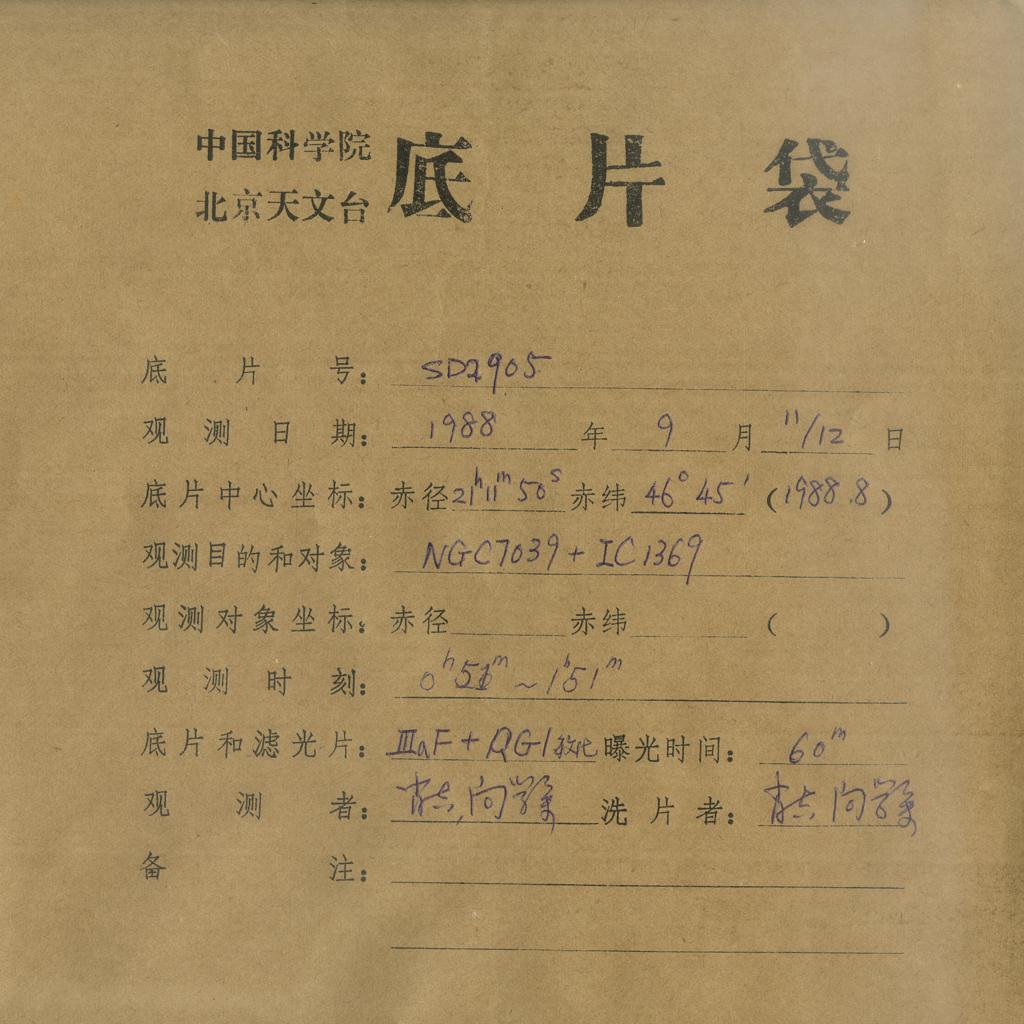 中国科学院
北京天文台
底片袋
底片号：SD2905
观测日期：1988年9月11/12日
底片中心坐标：赤径21h11m50s赤纬46°45′（1988.8）
观测目的和对象：NGC7039+IC1369
观测对象坐标：赤径 赤纬 （ ）
观测时刻：0h51m~1h51m
底片和滤光片：ⅢaF+QG1 曝光时间：60m
观测者：向 洗片者：向
备注：